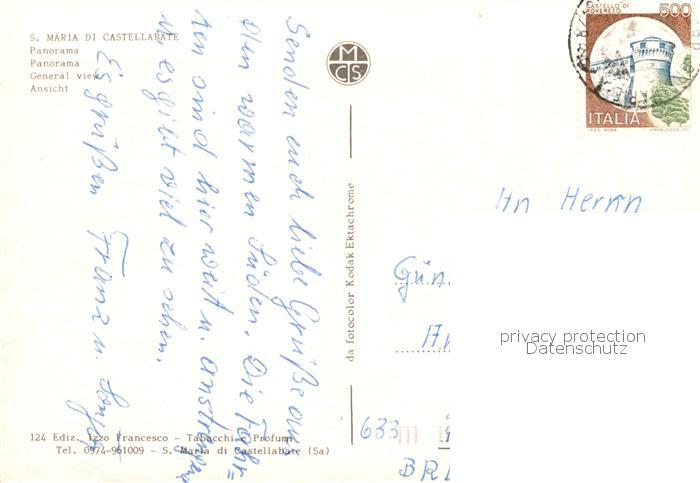 S. MARIA DI CASTELLABATE
Panorama
Panorama
General view
Ansicht
MCS
CASTELLO DI
ROVERETO
500
ITALIA
Senden euch liebe Grüße au
dem warmen Süden. Die Fahr=
ten sind hier weit u. anstrengend
u. es gibt viel zu sehen.
Es grüßen Franz u.
da fotocolor Kodak Ektachrome
An Herrn
Gün
privacy protection
Datenschutz
633
BR
124 Ediz. Izzo Francesco - Tabacchi e Profumi
Tel. 0974-961009 - S. Maria di Castellabate (Sa)